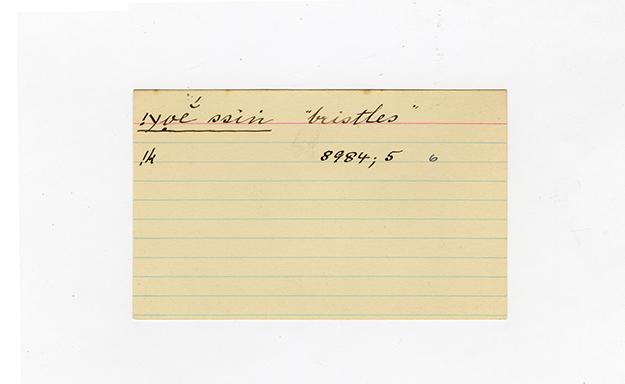 !χoë̆ ssin "bristles"
!k 8984; 5 6